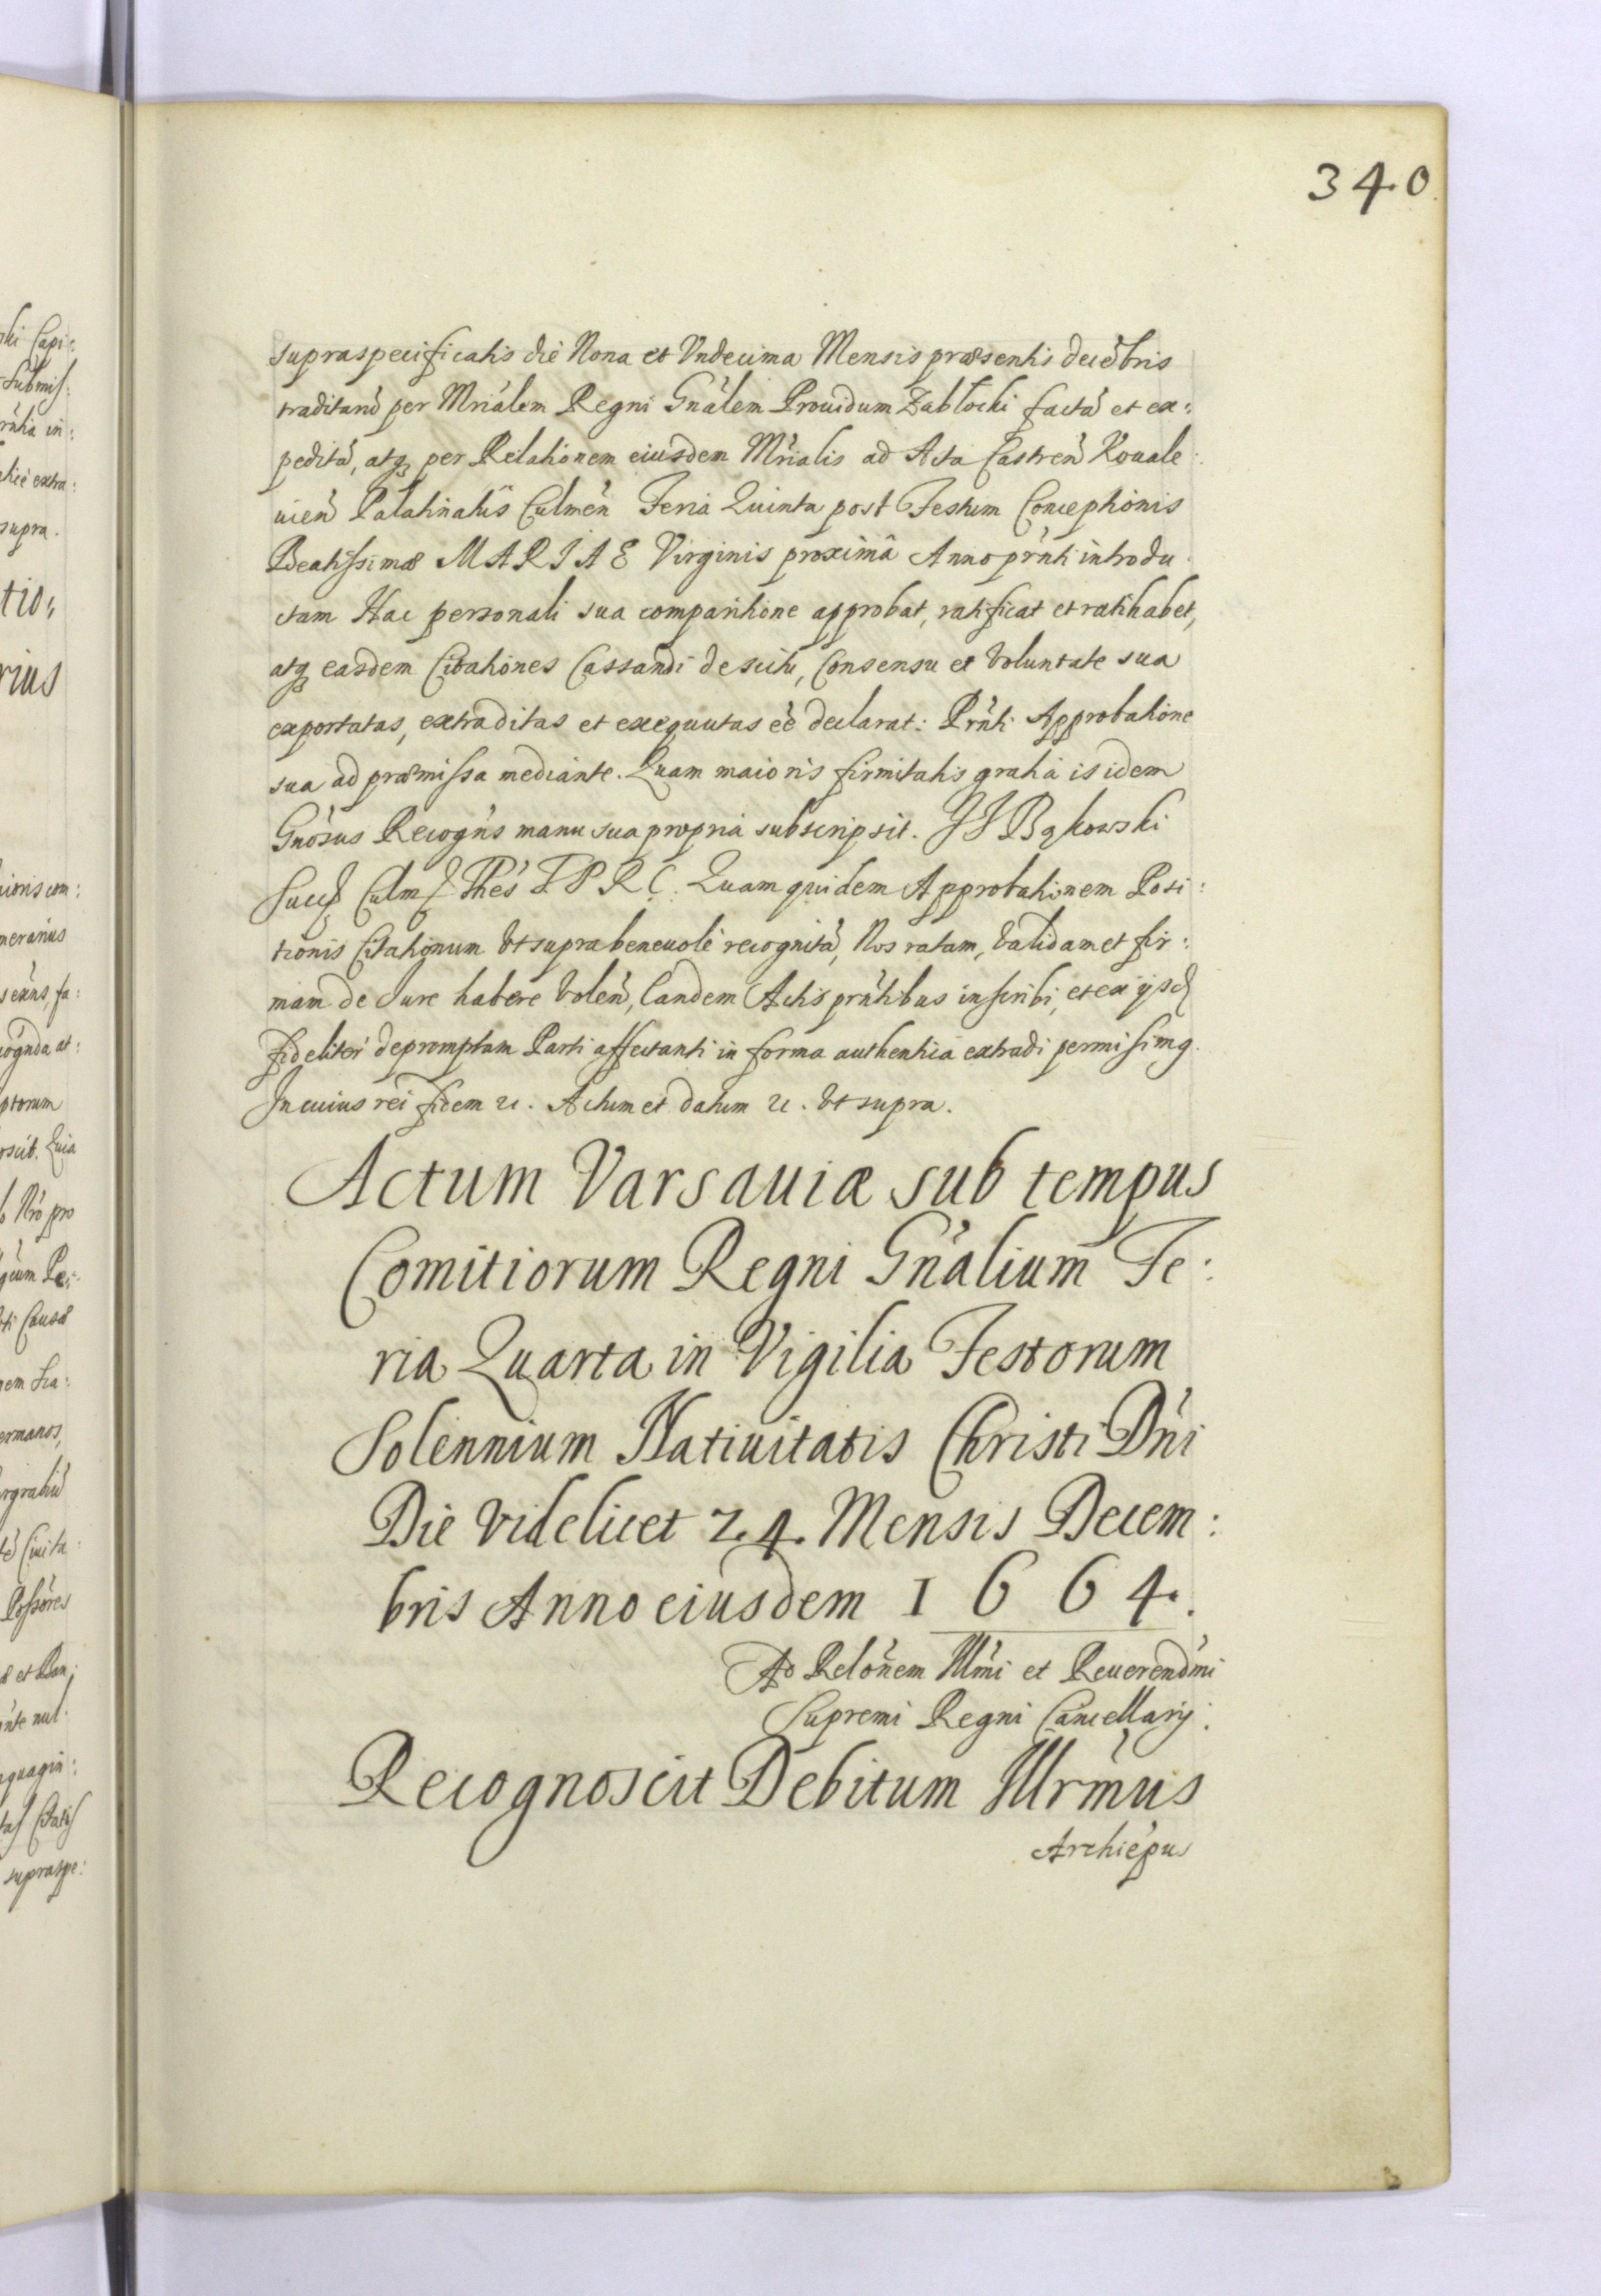 340
supraspecificatis die Nona et Vndecima Mensis præsentis decēbris
traditarū per Mriālem Regni Gnālem Prouidum Zabłocki factā et ex:
peditā, atq₃ per Relationem eiusdem Mriālis ad Acta Castreñ Kouale:
uieñ Palatinatûs Culmeñ Feria Quinta post Festum Conceptionis
Beatissimæ MARIAE Virginis proximâ Anno prñti introdu:
ctam Hac personali sua comparitione approbat, ratificat et ratihabet,
atq₃ easdem Citationes Cassandi de scitu, Consensu et Voluntate sua
exportatas, extraditas et exequutas eē declarat: Prñti Approbatione
sua ad præmissa mediante. Quam maioris firmitatis gratiâ is idem
Gnōsus Recogñs manu sua propria subscripsit. JJ Bąkowski
Succ Culm Thes T P R C. Quam quidem Approbationem Posi:
tionis Citationum Vt supra beneuolè recognitā, Nos ratam, Validam et fir:
mam de Iure habere Voleñ, Eandem Actis prñtibus inscribi, et ex ijsd
fideliter depromptam Parti affectanti in forma authentica extradi permisimq.
In cuius rei fidem &c. Actum et datum &c. Vt supra.
Actum Varsauiæ sub tempus
Comitiorum Regni Gñalium Fe:
ria Quarta in Vigilia Festorum
Solennium Natiuitatis Christi Dñi
Die Videlicet 24. Mensis Decem:
bris Anno eiusdem 1664.
Ad Relōnem Illmi et Reuerendmi
Supremi Regni Cancellarij.
Recognoscit Debitum Illrmus
Archiepus